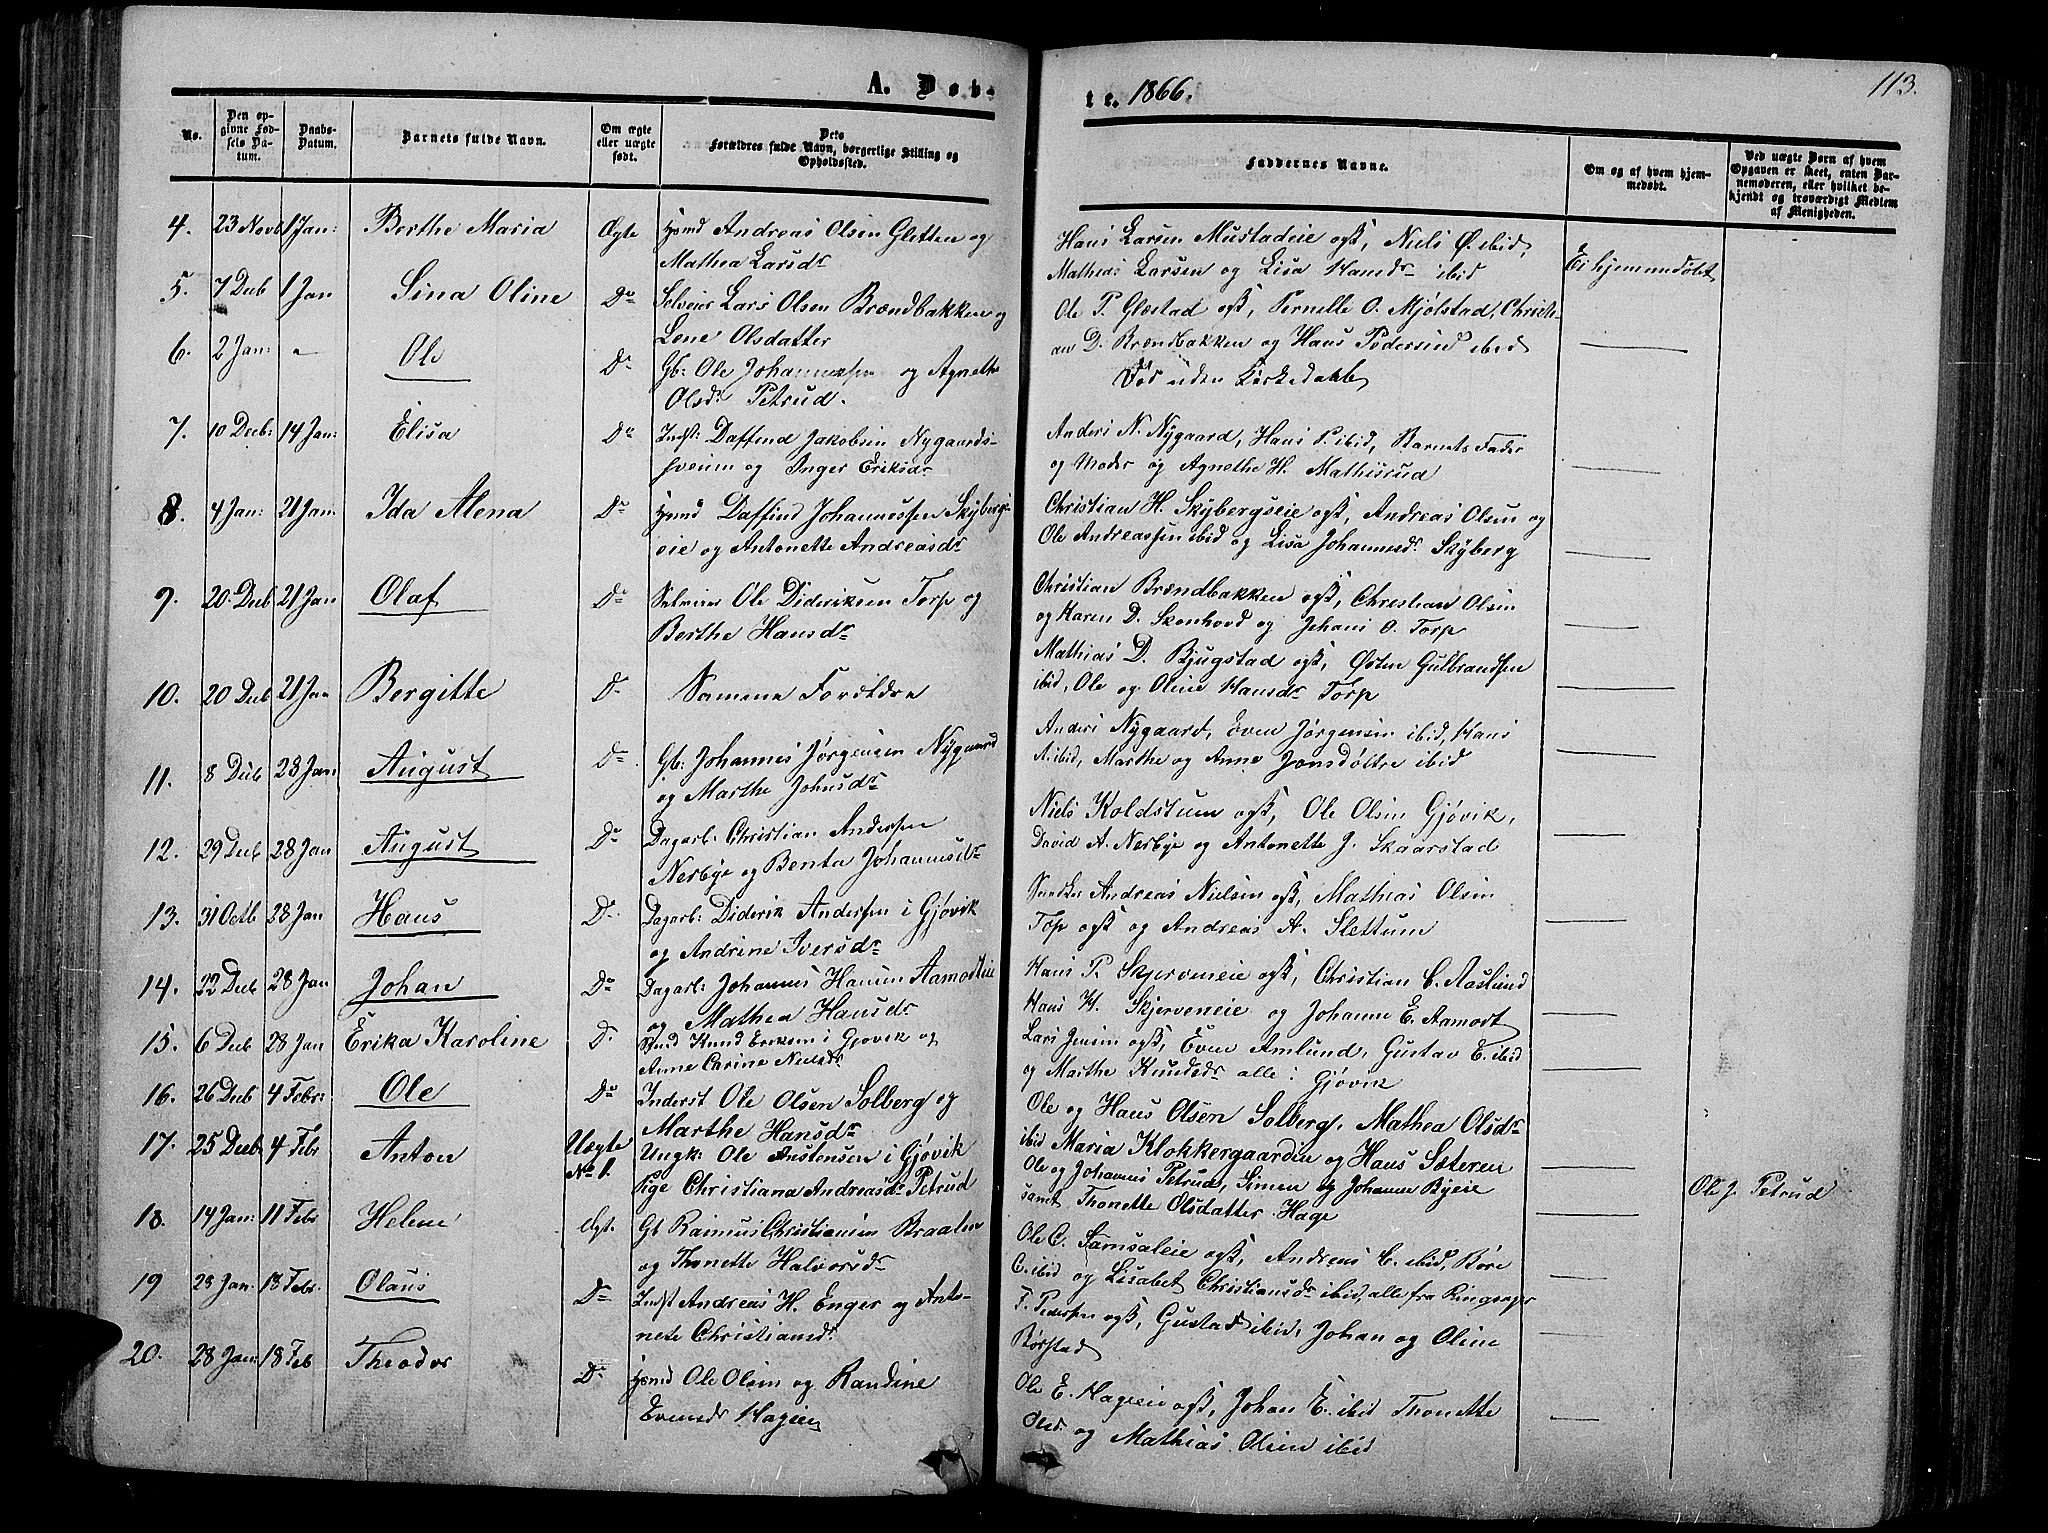 A. Døb-
te. 1866.
113.
No.
Den op-
givne Fød-
sels Da-
tum.
Daabs-
Datum.
Barnets fulde Navn.
Om ægte
eller uægte
født.
Dets
Forældres fulde Navn, borgerlige Stilling og
Opholdssted.
Faddernes Navne.
Om og af hvem hjem-
medøbt.
Ved uægte Børn af hvem
Opgaven er skeet, enten Bar-
nemoderen, eller hvilket be-
kjendt og troværdigt Medlem
af Menigheden.
4. 23 Novb 1 Jan: Berthe Maria Ægte Hsmd Andreas Olsen Gletten og
Mathea Larsdr
Hans Larsen Mustadeie ogß, Niels Ø. ibid,
Mathias Larsen og Lisa Hansdr ibid
Ei hjemmedøbt
5. 7 Deb 1 Jan Sina Oline Do Selveier Lars Olsen Brændbakken og
Lene Olsdatter
Ole P. Glæstad ogß, Pernelle O. Mjølstad, Christi-
an D. Brændbakken og Hans Pedersen ibid
6. 2 Jan: " Ole Do Gb: Ole Johannessen og Agnethe
Olsdr Petrud.
Død uden Kirkedaab
7. 10 Decb: 14 Jan: Elisa Do Indst: Daffind Jakobsen Nygaards-
sveum og Inger Eriksdr
Anders N. Nygaard, Hans P. ibid, Barnets Fader
og Moder og Agnethe H. Mathisrud
8. 4 Jan: 21 Jan. Ida Alena Do Hsmd Daffind Johannessen Skyberg-
eie og Antonette Andreasdr
Christian H. Skybergseie ogß, Andreas Olsen og
Ole Andreassen ibid og Lisa Johannesdr Skyberg
9. 20 Deb 21 Jan Olaf Do Selveier Ole Dideriksen Torp og
Berthe Hansdr
Christian Brændbakken ogß, Christian Olsen
og Karen D. Skonhovd og Johans O. Torp
10. 20 Deb 21 Jan Bergitte Do Samme Forældre
Mathias D. Bjugstad ogß, Østen Gulbrandsen
ibid, Ole og Oline Hansdr Torp
11. 8 Deb 28 Jan August Do Gb: Johannes Jørgensen Nygaard
og Marthe Johnsdr
Anders Nygaard, Even Jørgensen ibid, Hans
A. ibid, Marthe og Anne Jonsdøttre ibid
12. 29 Deb 28 Jan August Do Dagarb: Christian Andersen
Nerbye og Benta Johannesdr
Niels Koldstum ogß, Ole Olsen Gjøvik,
David A. Nerbye og Antonette J. Skaarstad
13. 31 Octb 28 Jan Hans Do Dagarb: Diderik Andersen i Gjøvik
og Andrine Iversdr
Snedker Andreas Nielsen ogß, Mathias Olsen
Torp ogß og Andreas A. Slettum
14. 22 Deb 28 Jan Johan Do Dagarb: Johannes Hansen Aamodteie
og Mathea Hansdr
Hans P. Skjerveneie ogß, Christian C. Aaslund
Hans H. Skjerveneie og Johanne E. Aamodt
15. 6 Deb 28 Jan Erika Karoline Do Knud Eriksen i Gjøvik og
Anne Carine Nielsdr
Lars Jensen ogß, Even Amlund, Gustav E. ibid
og Marthe Knudsdr alle i Gjøvik
16. 26 Deb 4 Febr: Ole Do Inderst Ole Olsen Solberg og
Marthe Hansdr
Ole og Hans Olsen Solberg, Mathea Olsdr
ibid Maria Klokkergaarden og Hans Sæteren
17. 25 Deb 4 Febr Anton Uægte
No 1.
Ungk: Ole Anstensen i Gjøvik
Pige Christiana Andreasdr Petrud
Ole og Johannes Petrud, Simen og Johanne Byeie
samt Thonette Olsdatter Hage
Ole J. Petrud
18. 14 Jan: 11 Febr Helene Ægt. Gb Rasmus Christiansen Braaten
og Thonette Halvorsdr
Ole C. Samsaleie ogß, Andreas C. ibid, Børe
C. ibid og Lisabet Christiansdr ibid, alle fra Ringsager
19 28 Jan: 18 Febr. Olaus Do Indst Andreas H. Enger og Anto-
nete Christiansdr
F. Pedersen ogß, Gustad ibid, Johan og Oline
Børstad
20. 28 Jan: 18 Feb Theodor Do Hsmd Ole Olsen og Randine
Evensdr Hageeie
Ole E. Hageeie ogß, Johan E. ibid Thonette
Olsd. og Mathias Olsen ibid